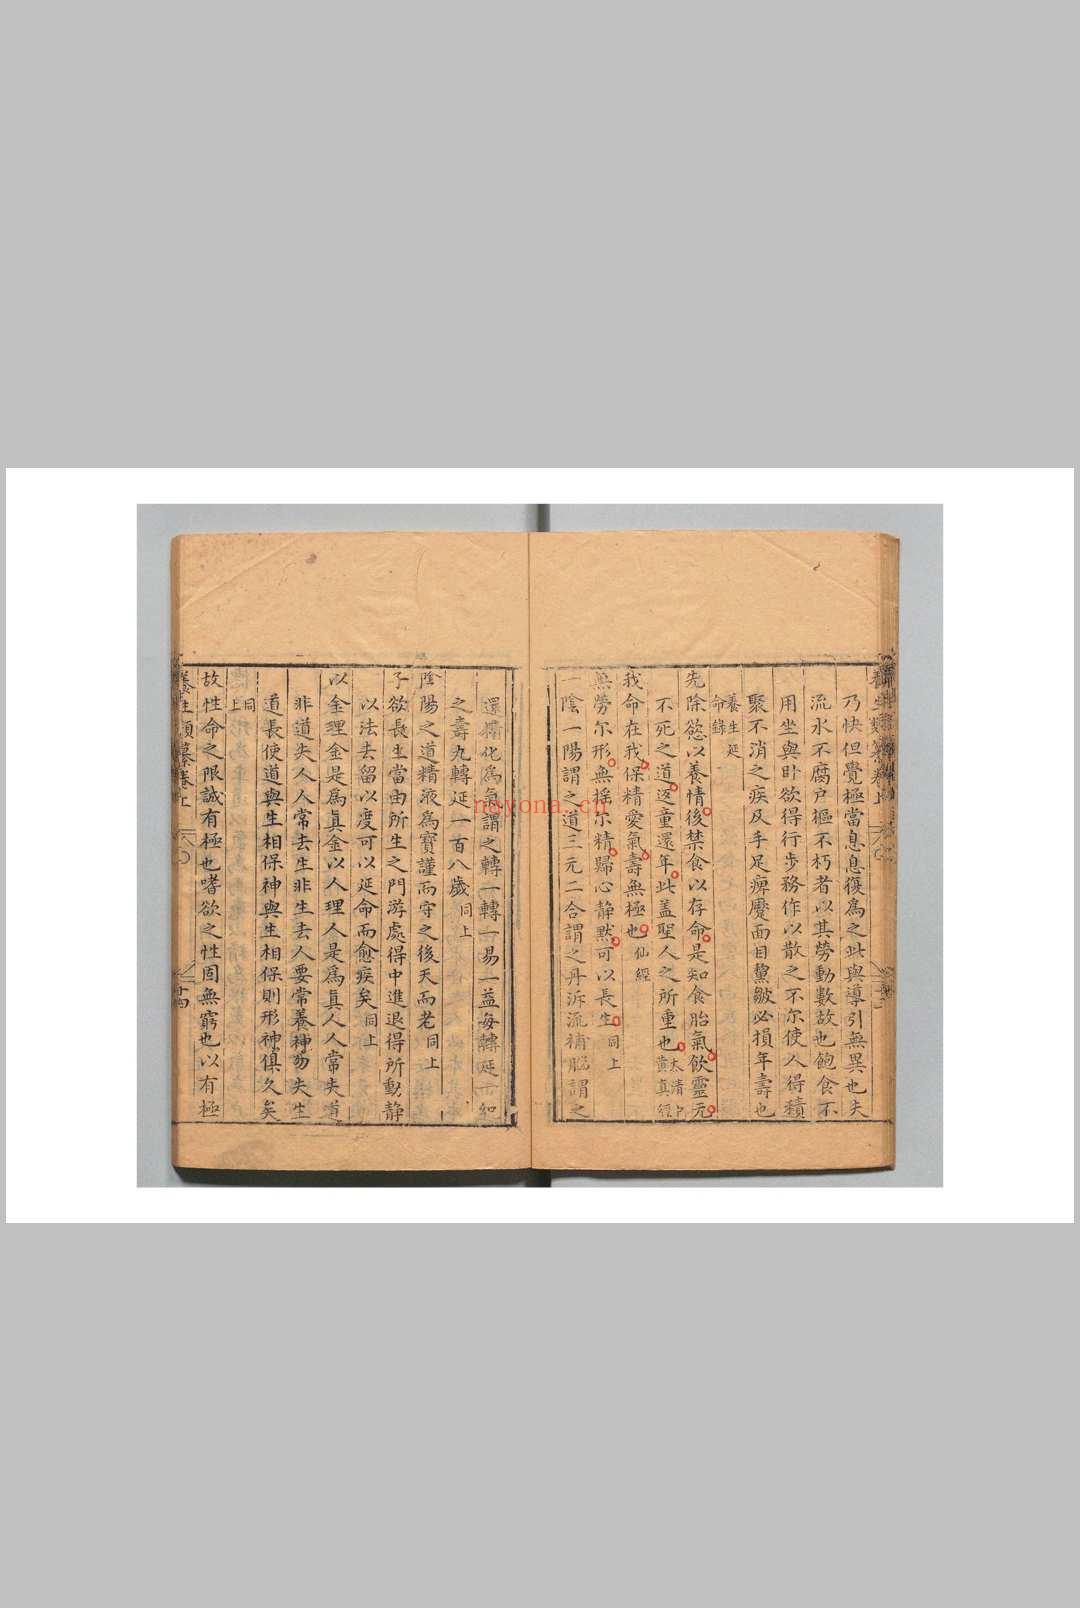 乃快但覺極當息息復為之此與導引無異也夫
流水不腐户樞不朽者以其勞動數故也飽食不
用坐與卧欲得行步務作以散之不尔使人得積
聚不消之疾及手足痺蹷面目黧皺必損年壽也
養生延
命錄
先除慾以養情後禁食以存命是知食胎氣飲靈元
不死之道返童還年此蓋聖人之所重也太清中
黄真經
我命在我保精愛氣壽無極也仙經
無勞尔形無搖尔精歸心静黙可以長生同上
一陰一陽謂之道三元二合謂之丹泝流補腦謂之
還精化為氣謂之轉一轉一易一益每轉延一紀
之壽九轉延一百八歲同上
陰陽之道精液為寶謹而守之後天而老同上
子欲長生當由所生之門游處得中進退得所動静
以法去留以度可以延命而愈疾矣同上
以金理金是為真金以人理人是為真人人常失道
非道失人人常去生非生去人要常養神勿失生
道長使道與生相保神與生相保則形神俱久矣
同上
故性命之限誠有極也嗜欲之性固無窮也以有極
養生類纂卷上
nayona.cn